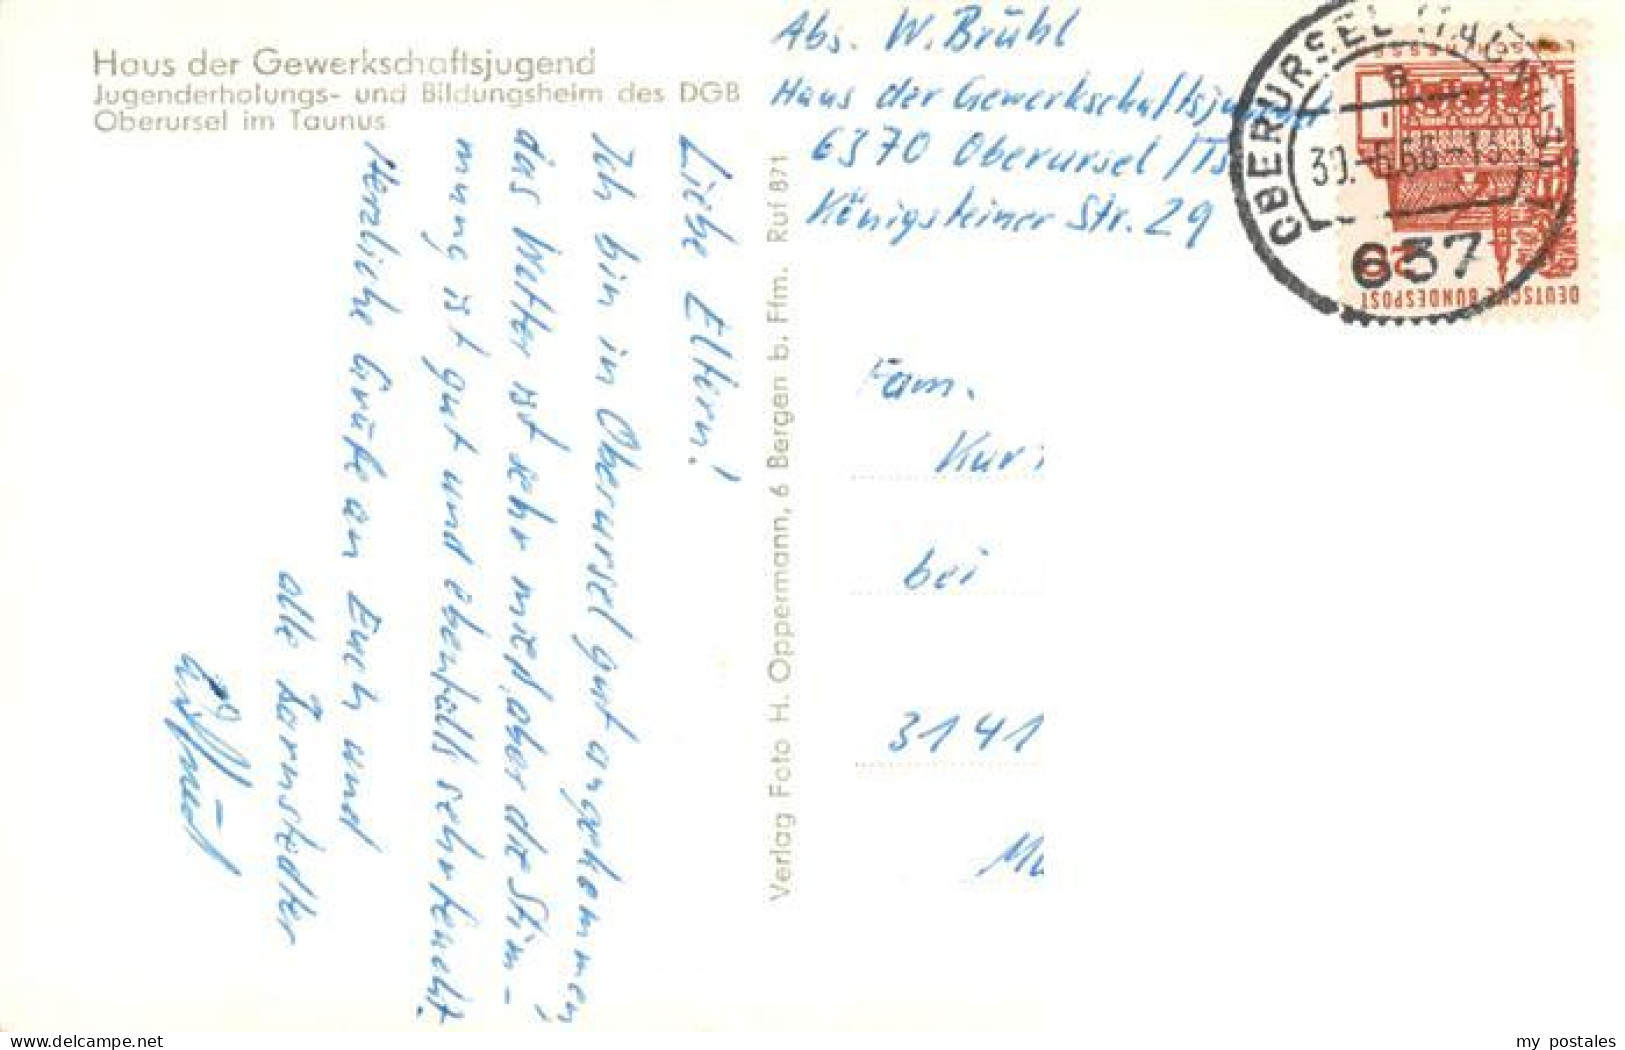 Haus der Gewerkschaftsjugend
Jugenderholungs- und Bildungsheim des DGB
Oberursel im Taunus
Liebe Eltern!
Ich bin in Oberursel gut angekommen,
das Wetter ist sehr mies, aber die Stim-
mung ist gut und ebenfalls sehr feucht.
Herzliche Grüße an Euch und
alle Barnstedter
Verlag Foto H. Oppermann, 6 Bergen b. Ffm. Ruf 871
Abs. W. Brühl
Haus der Gewerkschaftsjugend
6370 Oberursel /Ts
Königsteiner Str. 29
OBERURSEL (TAUNUS)
a
30.-6.68-13
637
DEUTSCHE BUNDESPOST
20
Fam.
Kur
bei
3141
delcampe.net
my postales